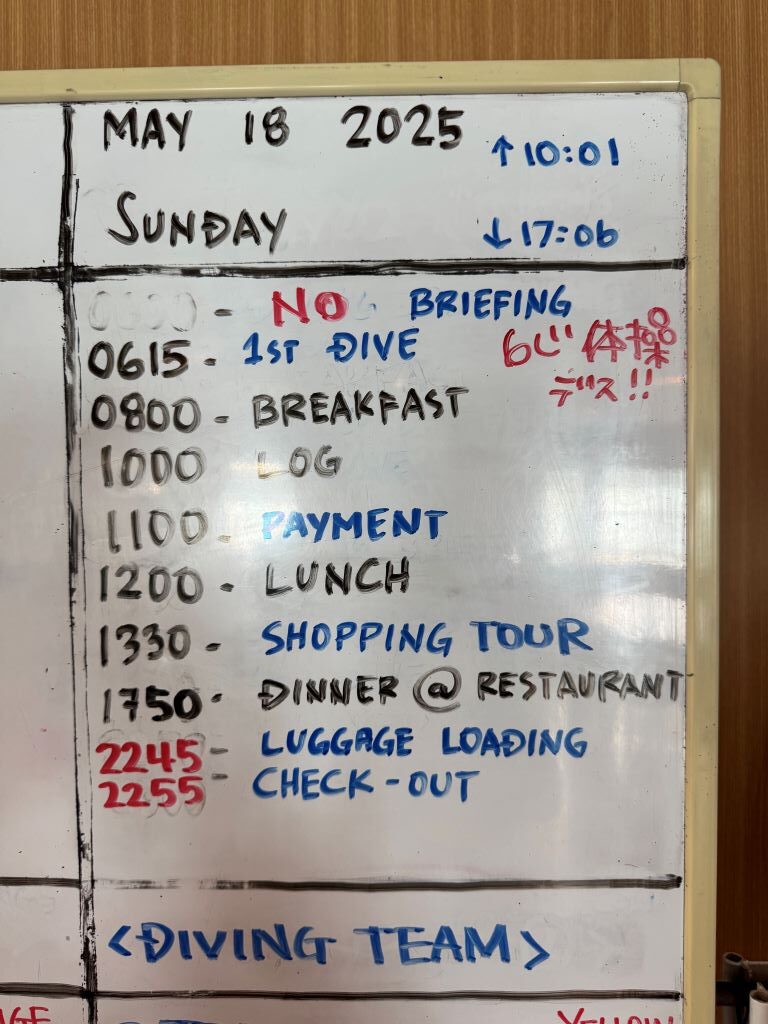 MAY 18 2025
↑10:01
SUNDAY
↓17:06
- NO BRIEFING
0615 - 1ST DIVE
6じ 体操
デス!!
0800 - BREAKFAST
1000 LOG
1100 - PAYMENT
1200 - LUNCH
1330 - SHOPPING TOUR
1750 - DINNER @ RESTAURANT
2245 - LUGGAGE LOADING
2255 - CHECK-OUT
<DIVING TEAM>
YELLOW